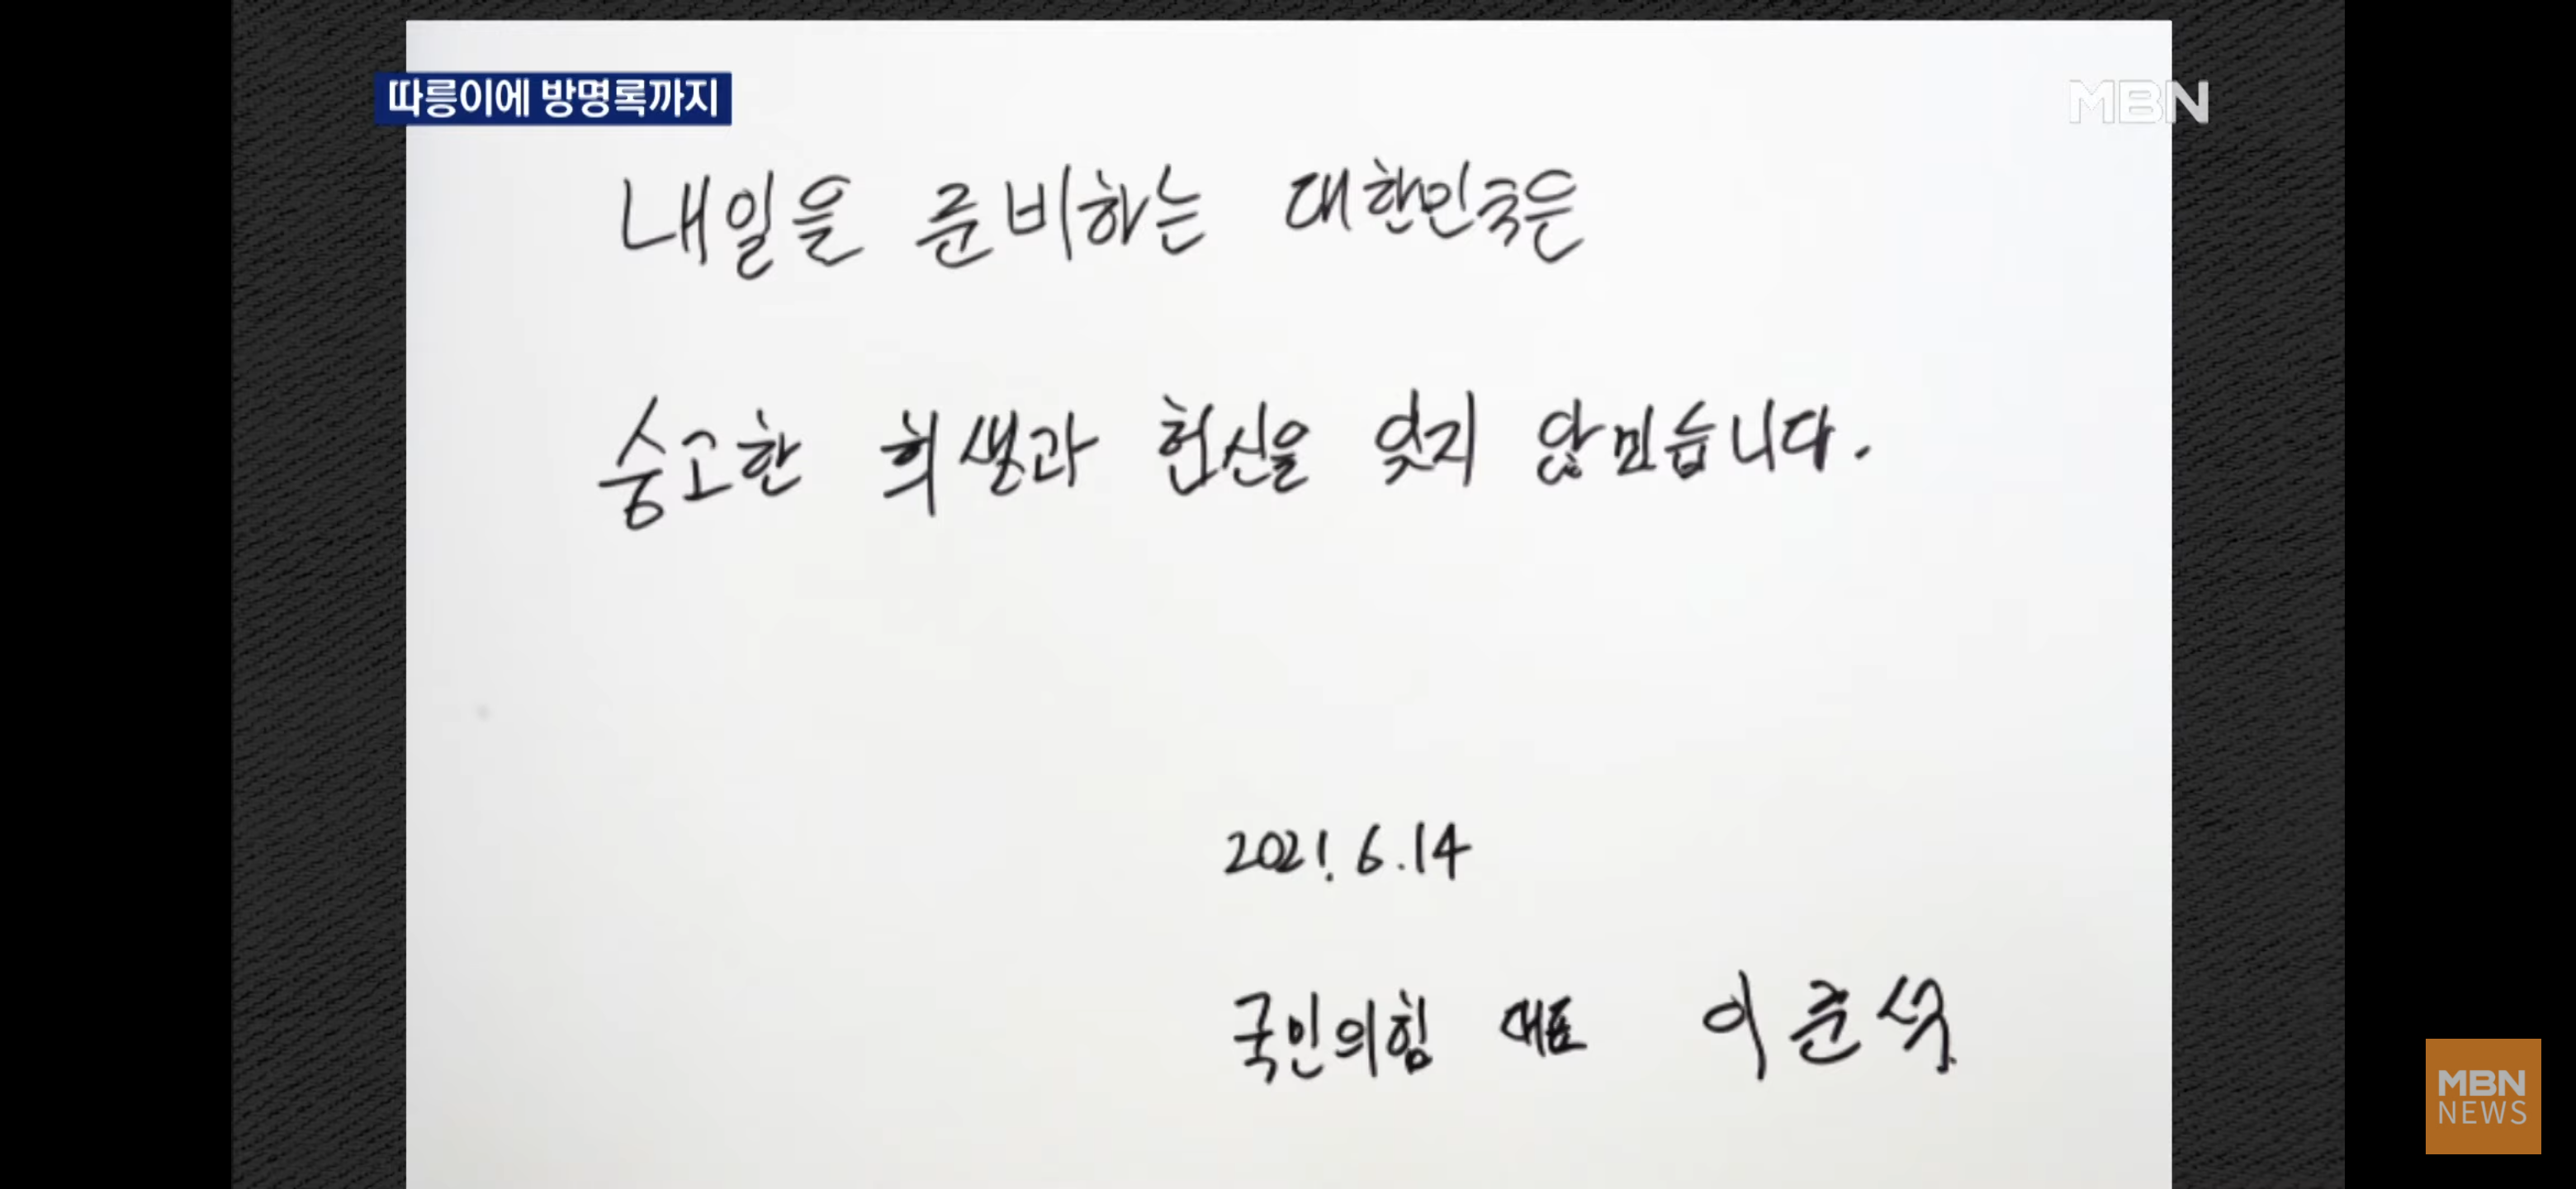 따릉이에 방명록까지
MBN
내일을 준비하는 대한민국은
숭고한 희생과 헌신을 잊지 않민습니다.
2021. 6. 14
국민의힘 대표 이준석
MBN
NEWS